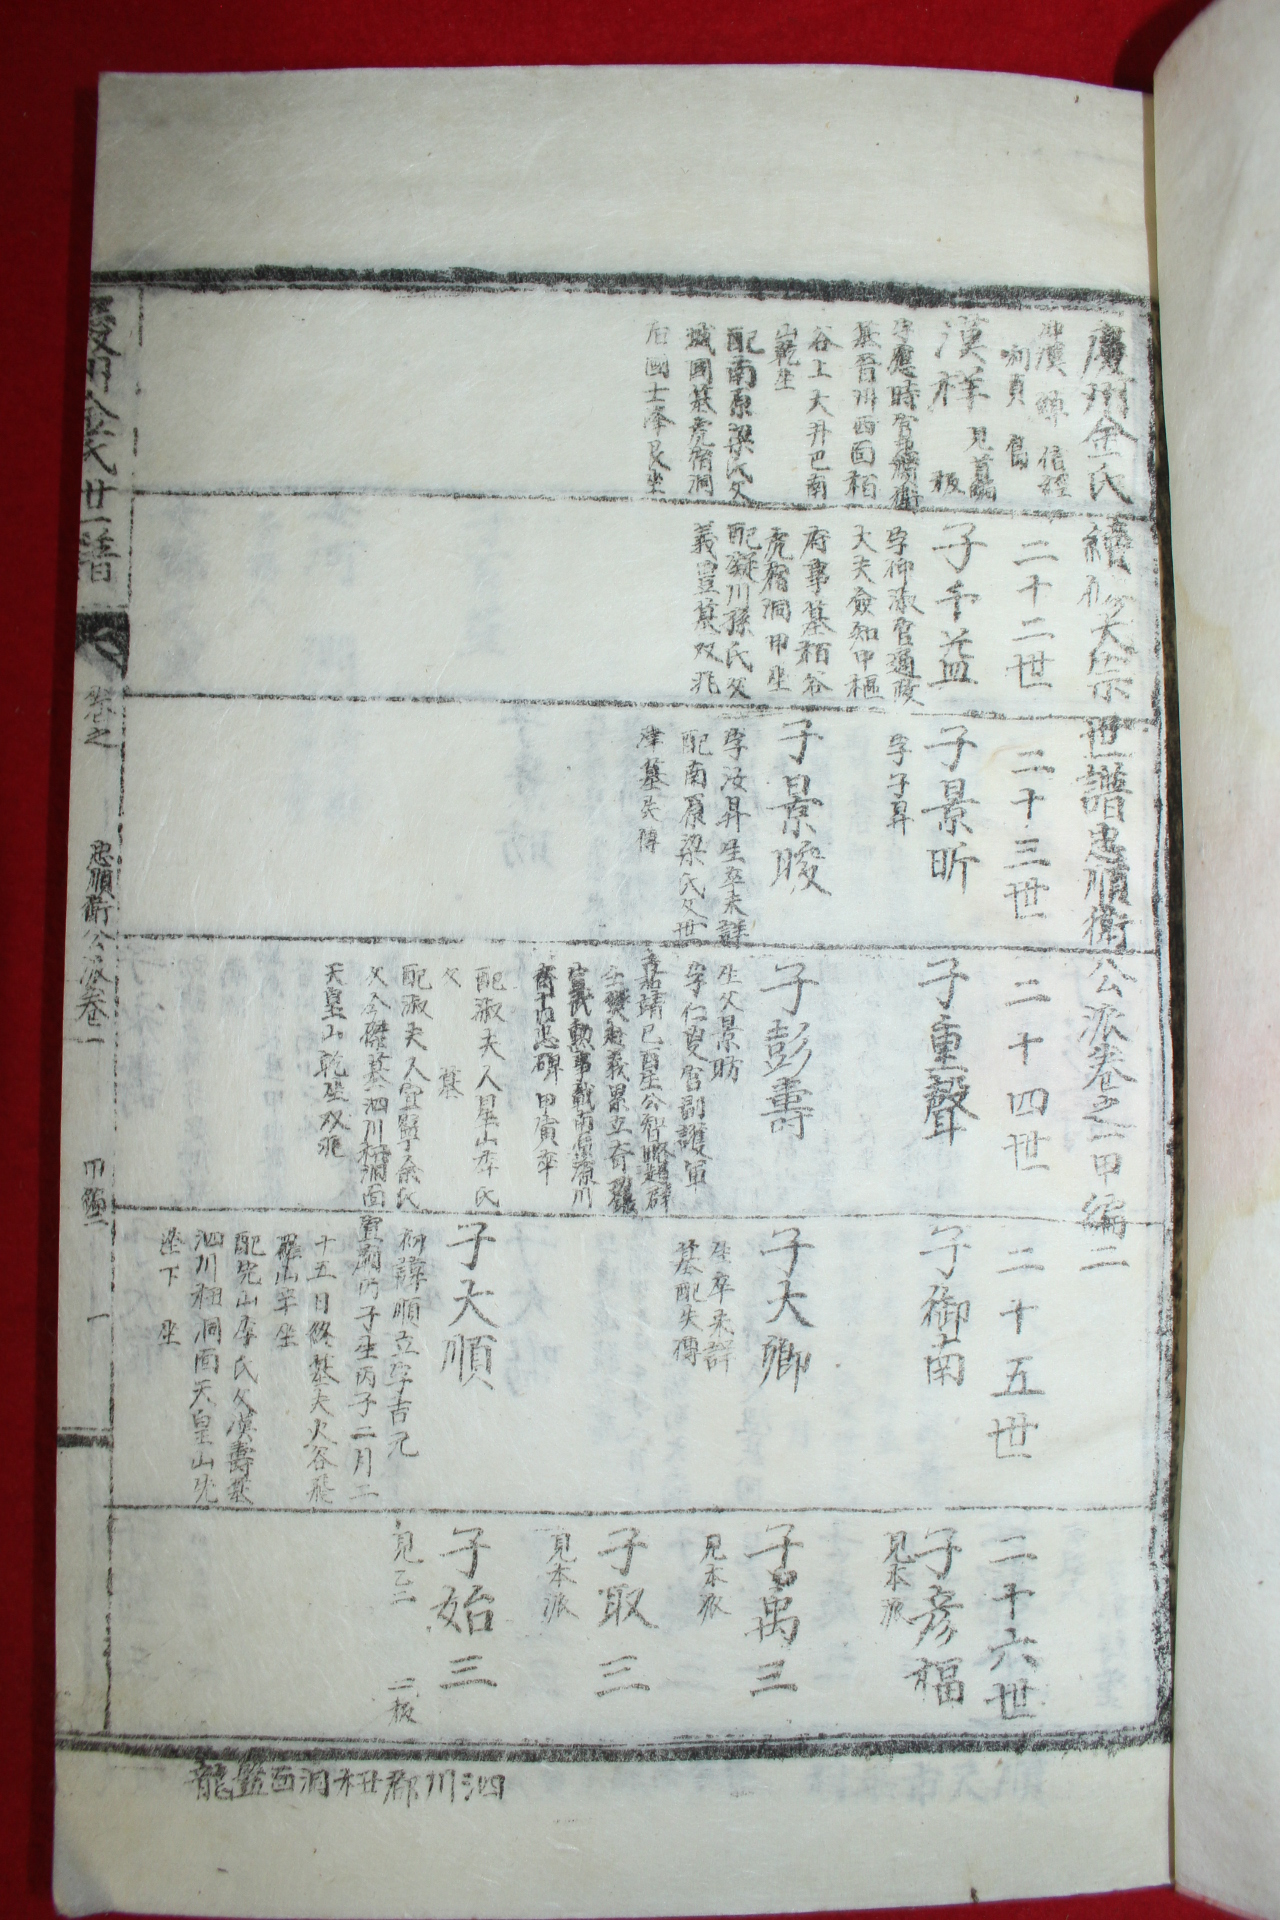 慶州金氏續修大宗世譜忠順衛公派卷之一甲編二
漢祥
見首編
板
字應時官忠順衛
墓晉州西面栢
谷上大升巴南
山乾坐
配南原梁氏父
國墓虎宿洞
后國士峰艮坐
二十二世
子千益
字仰淑官通政
大夫僉知中樞
府事墓栢谷
虎宿洞甲坐
配凝川孫氏父
義豊墓双兆
二十三世
子景昕
字子昇
子景晙
字汝昇生卒未詳
配南原梁氏父世
津墓失傳
二十四世
子重聲
子彭壽
生父景昉
字仁叟官副護軍
嘉靖己酉生公智略超群
壬燹起義累立奇
宣武勳事載南原
忠碑甲寅卒
配淑夫人星山李氏
父 墓
配淑夫人宜寧余氏
父今傑墓泗川杻洞面
天皇山乾坐双兆
二十五世
子御南
子大卿
生卒未詳
墓配失傳
子大順
初諱順立字吉元
宣廟丙子生丙子二月二
十五日終墓大火谷飛
羅山辛坐
配完山李氏父漢壽墓
泗川杻洞面天皇山先
塋下 坐
二十六世
子彦福
見本派
子萬三
見本派
子取三
見本派
子始三
見乙二 二板
慶州金氏世譜
卷之一
忠順衛公派卷一
甲編二
一
泗川郡杻洞面盤龍